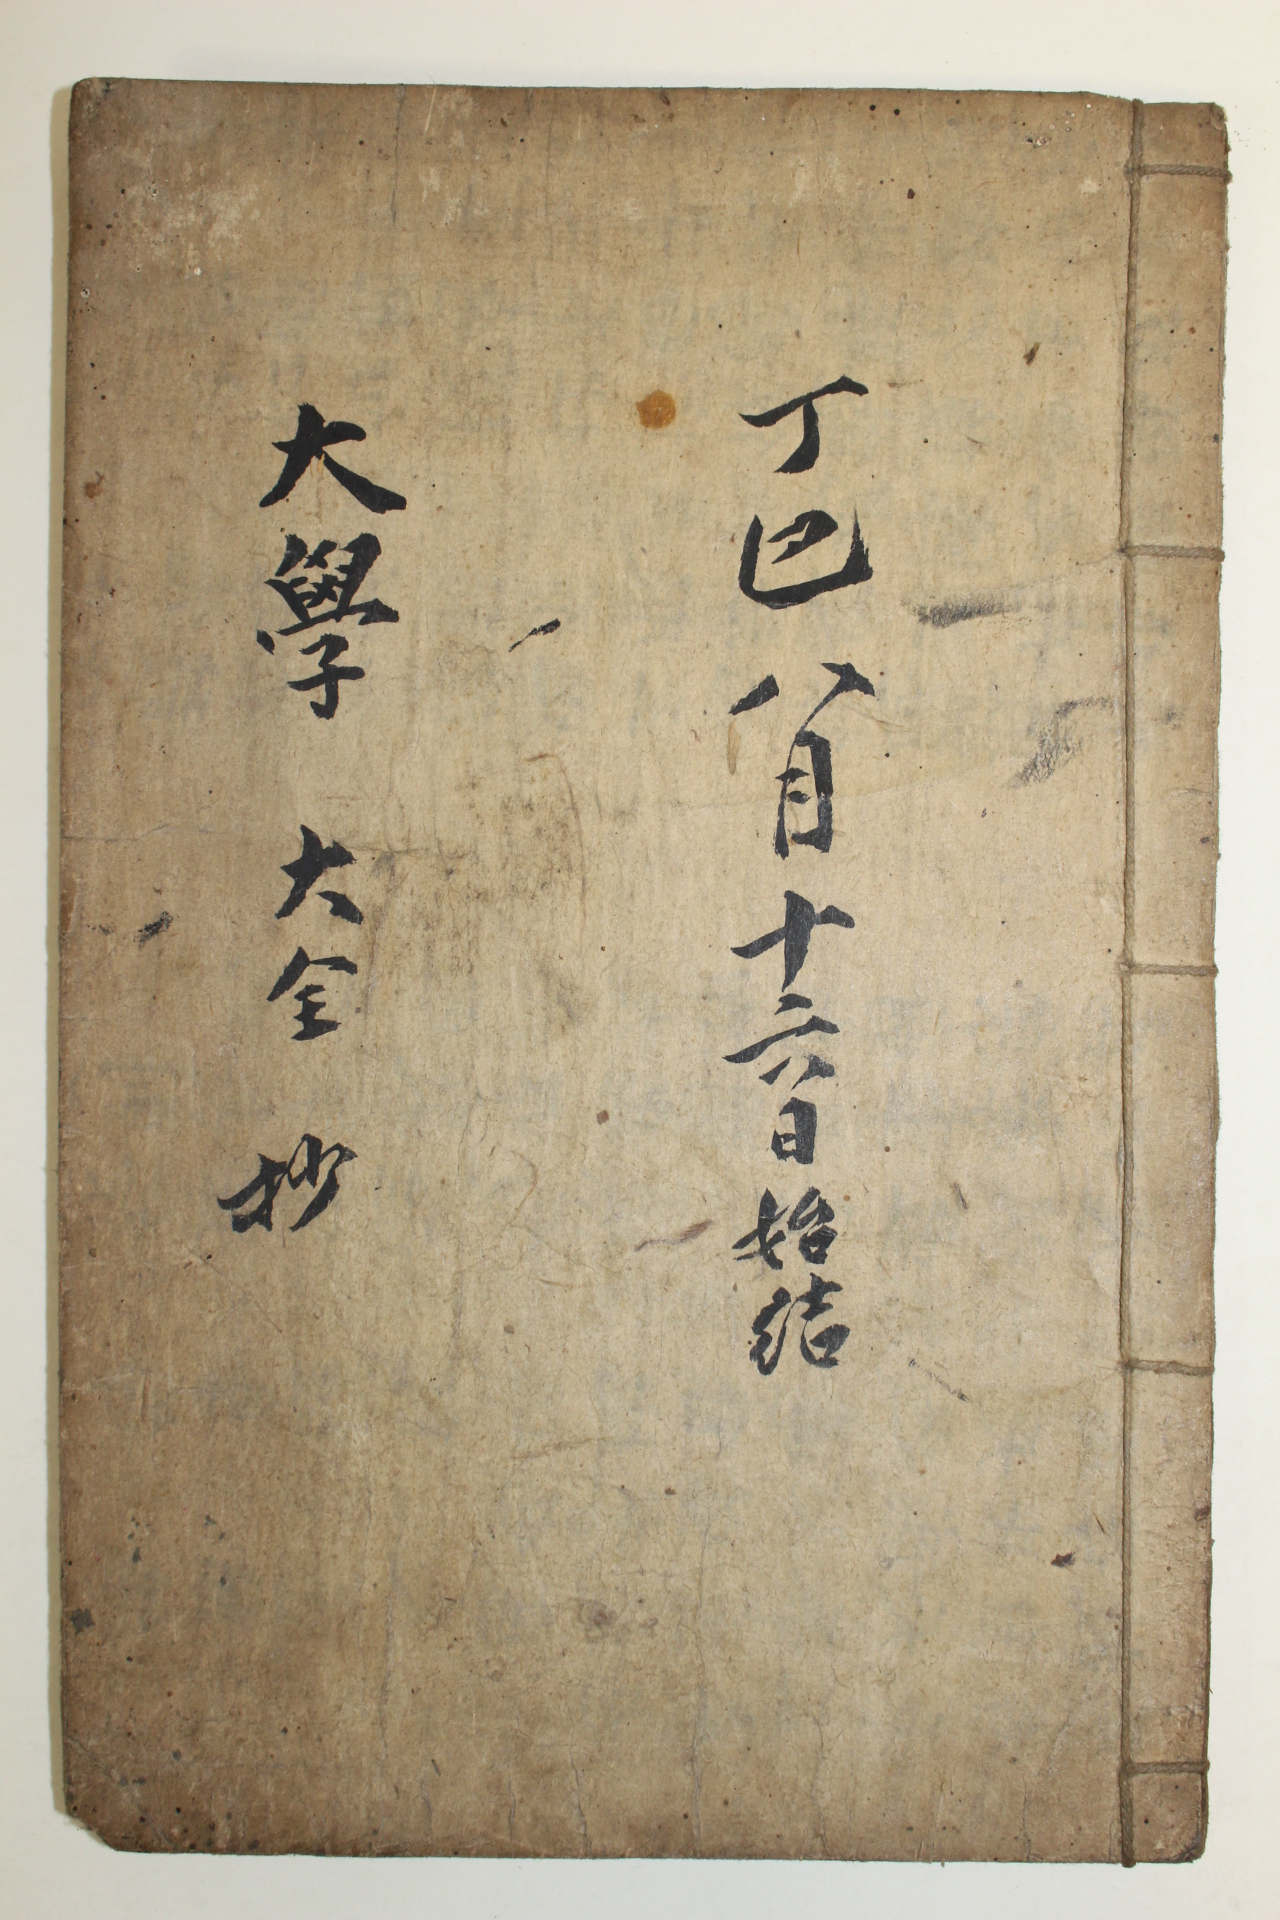 丁巳 八月 十六日 始結
大學 大全 抄